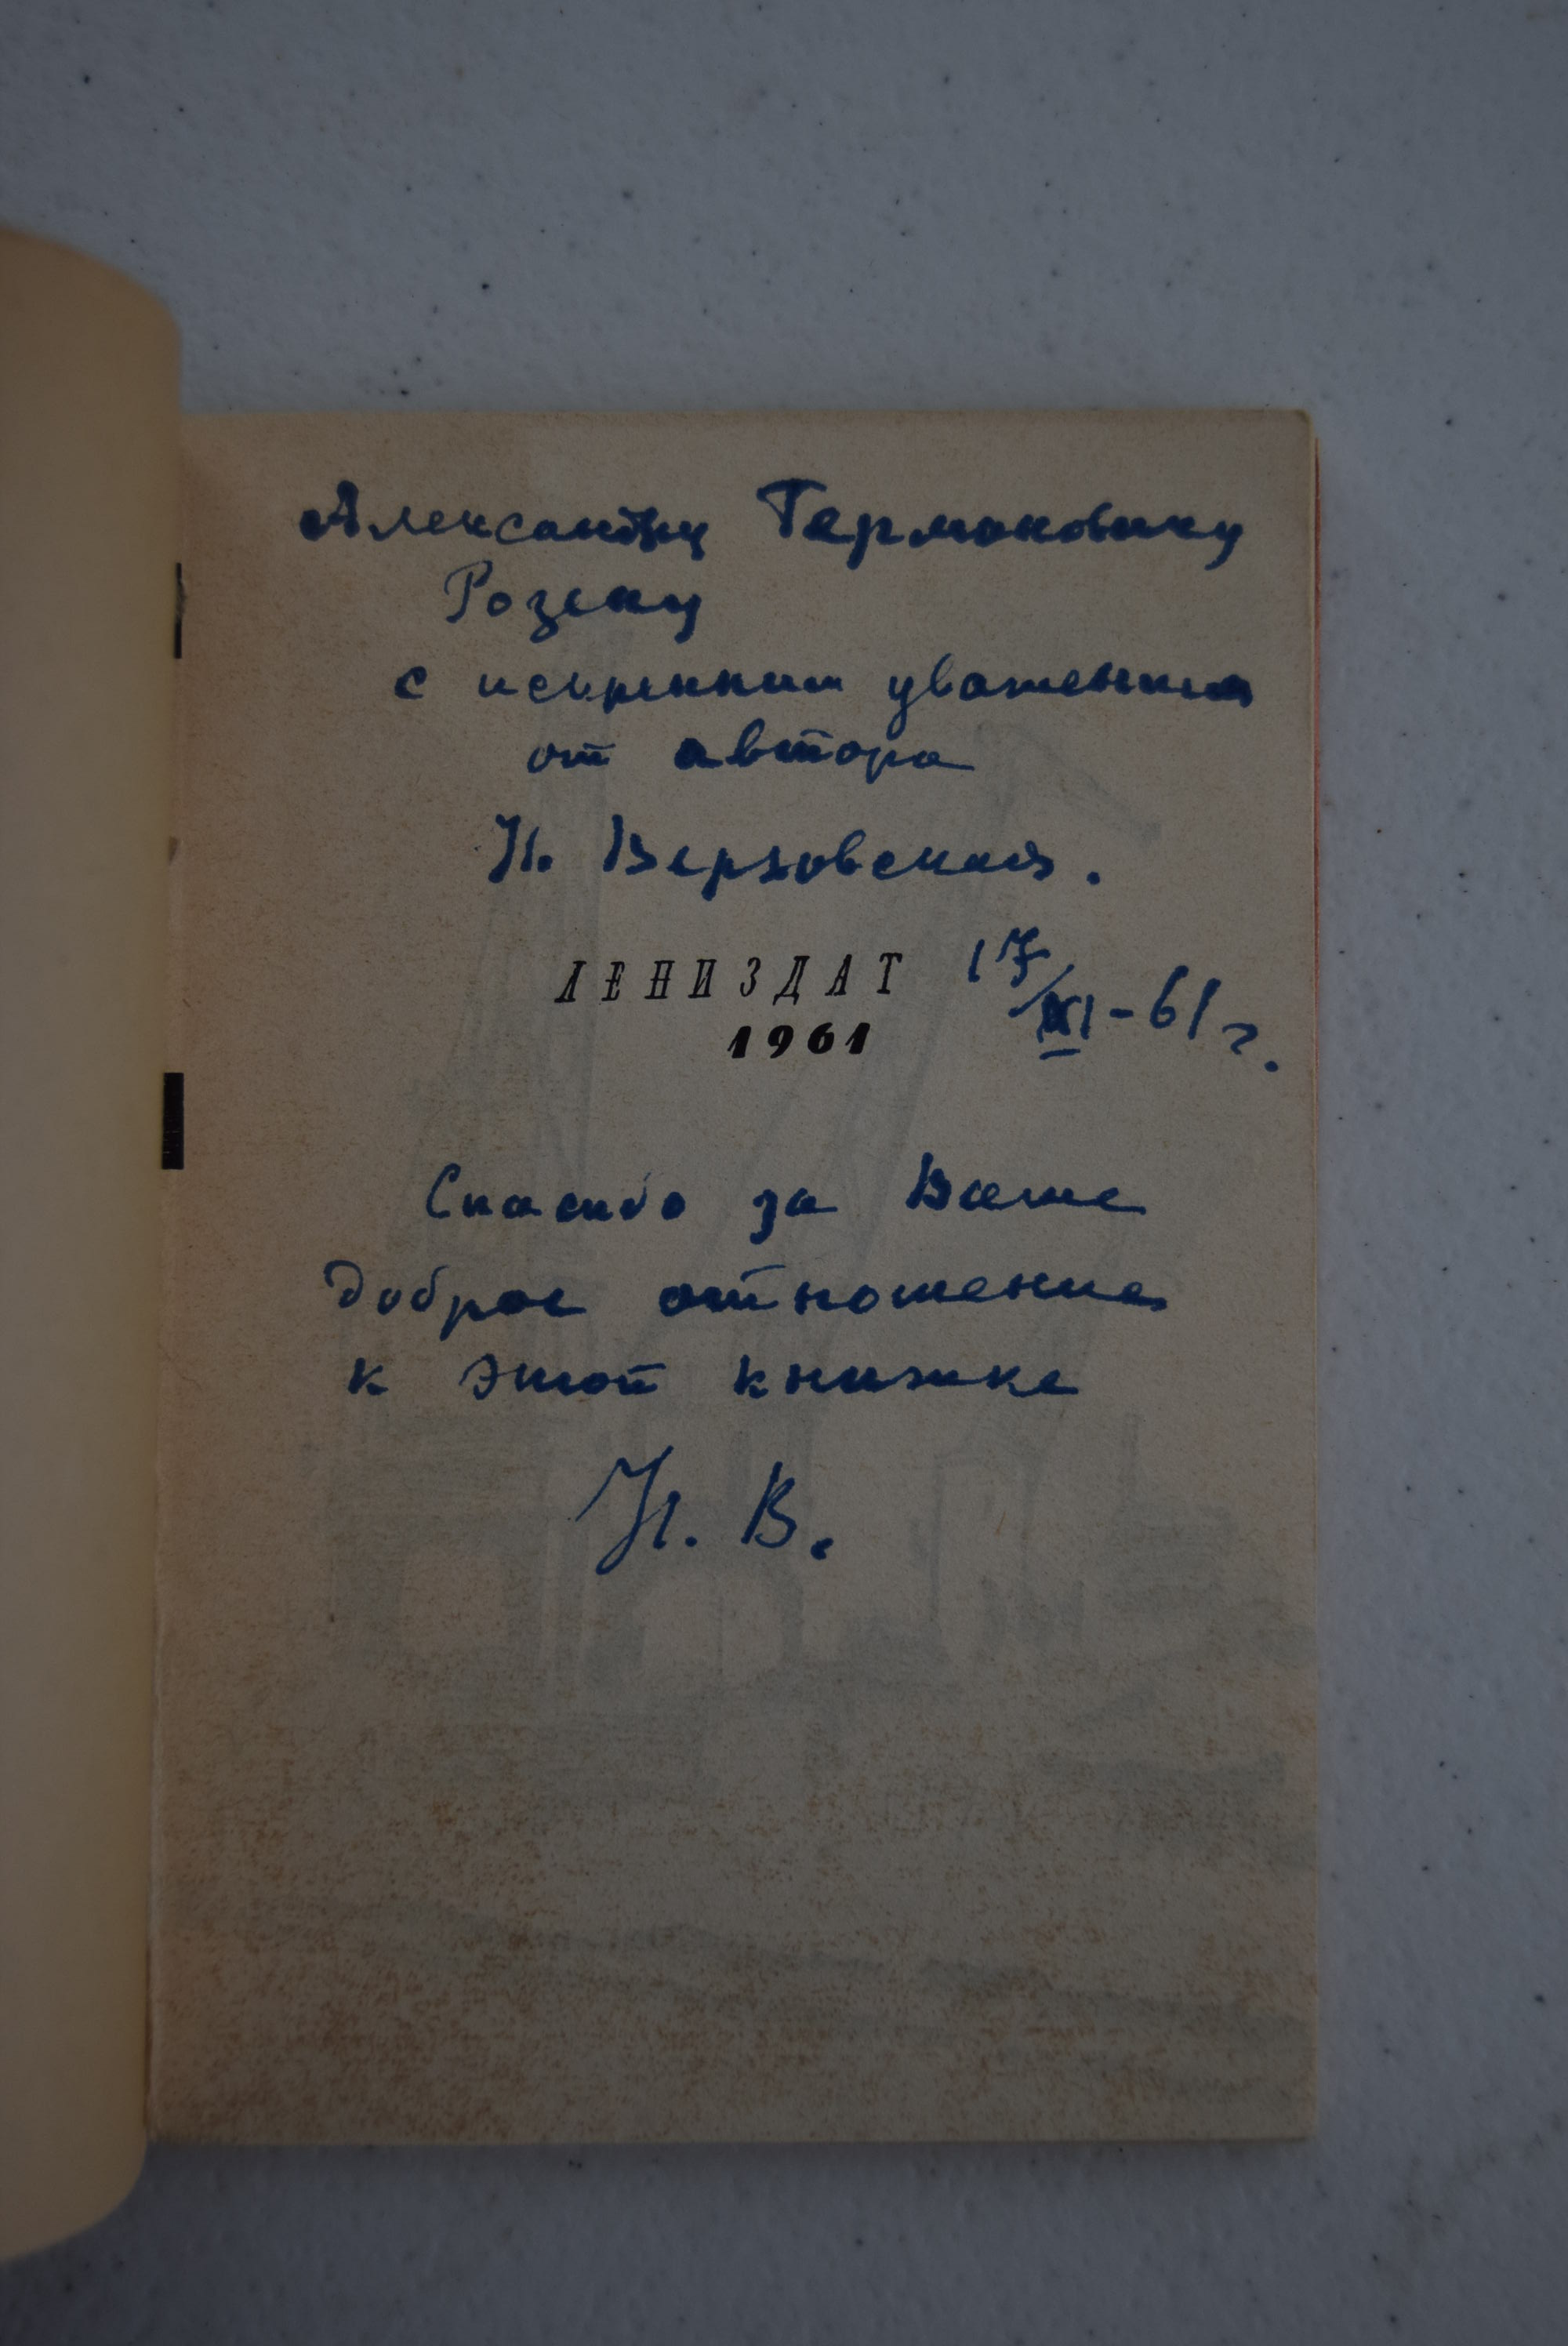 Александру Германовичу
Розену
с искренним уважением
от автора
Н. Верховская.
ЛЕНИЗДАТ
1961
17/XI-61 г.
Спасибо за Ваше
доброе отношение
к этой книжке
Н. В.